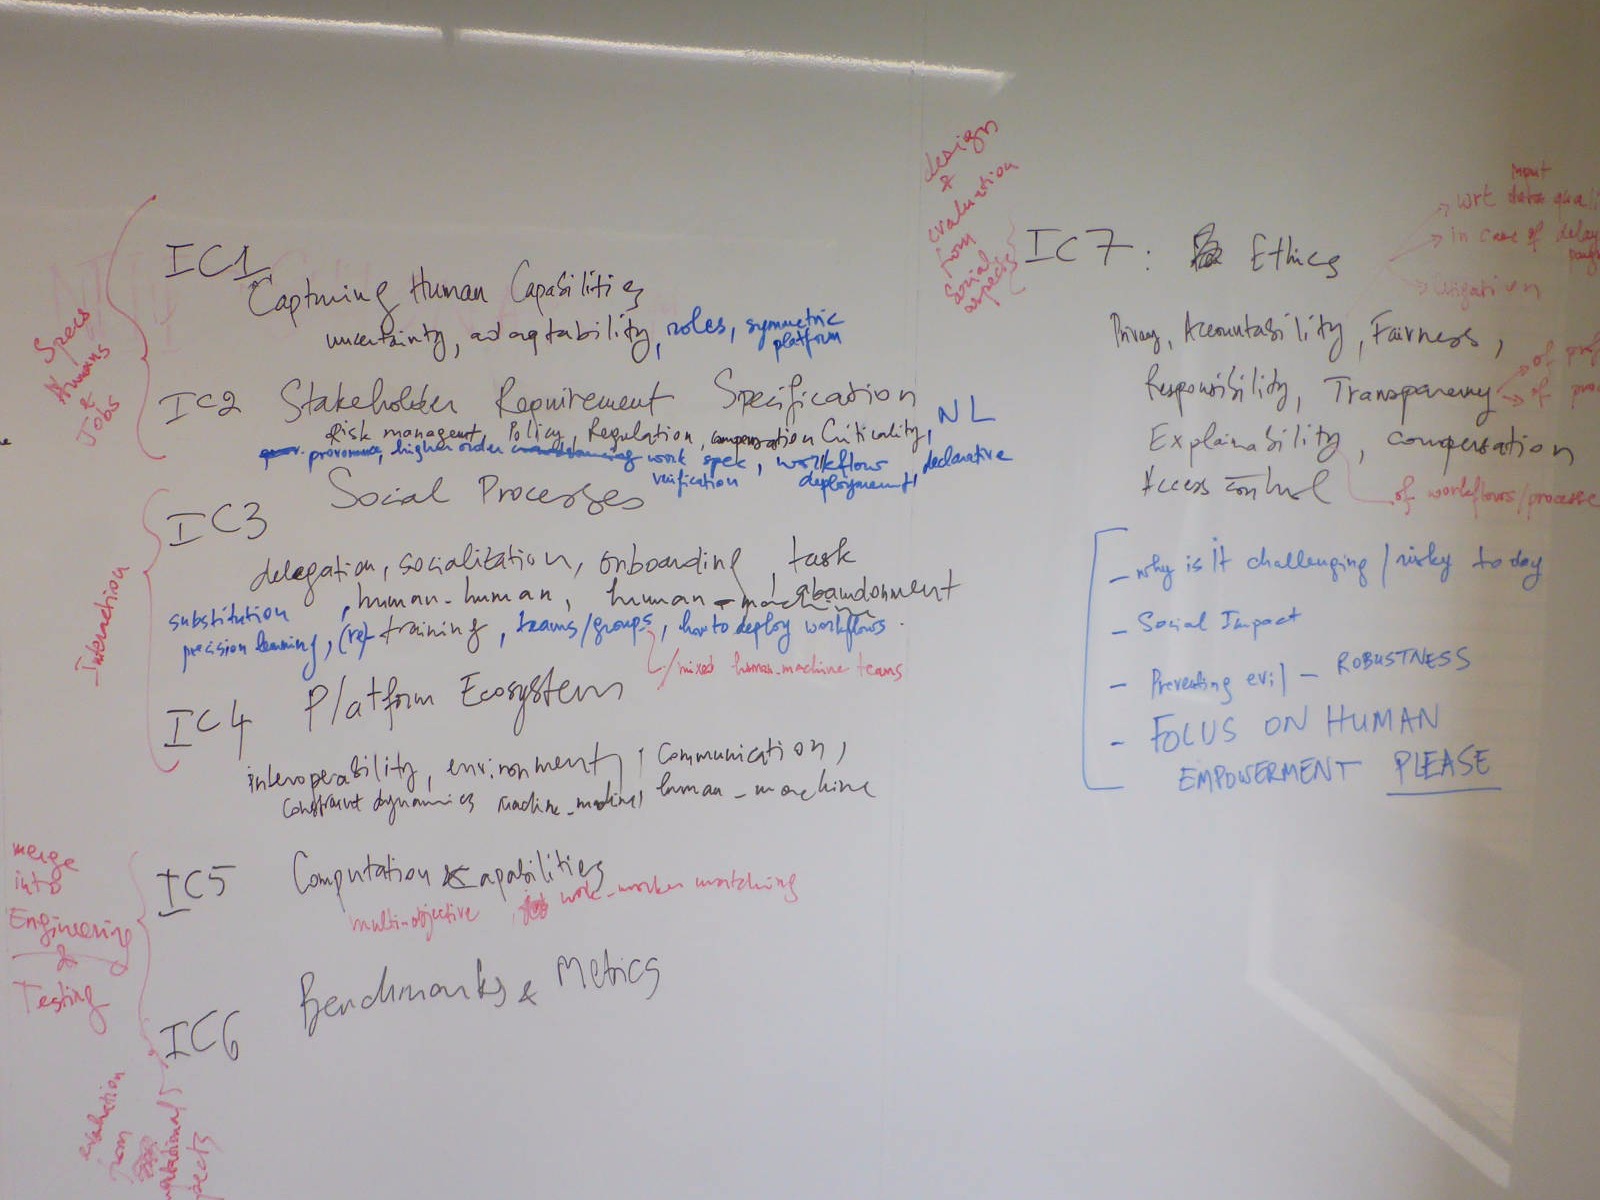 Specs
Humans
&
Jobs
IC1
Capturing Human Capabilities
uncertainty, adaptability, roles, symmetric
platform
IC2 Stakeholder Requirement Specification
Risk managemt, Policy, Regulation, compensation Criticality, NL
provenance, higher order work spec, workflow declarative
verification deployment,
Interaction
IC3 Social Processes
delegation, socialization, onboarding task
abandonment
substitution , human-human, human-machine
precision learning, (re) training, teams/groups, how to deploy workflows.
/mixed human-machine teams
IC4 Platform Ecosystem
interoperability, environment, communication,
constraint dynamics machine-machine, human-machine
merge
into
Engineering
&
Testing
IC5 Computation Capabilities
multi-objective, work-worker matching
IC6 Benchmarks & Metrics
evaluation
from
design
&
evaluation
from
social
aspects
IC7: Ethics
input
wrt data quali
in case of delay
Privacy, Accountability, Fairness,
Responsibility, Transparency
of
of
Explainability, compensation
Access control
of workflows/processe
- why is it challenging / risky today
- Social Impact
- Preventing evil - ROBUSTNESS
- FOCUS ON HUMAN
EMPOWERMENT PLEASE